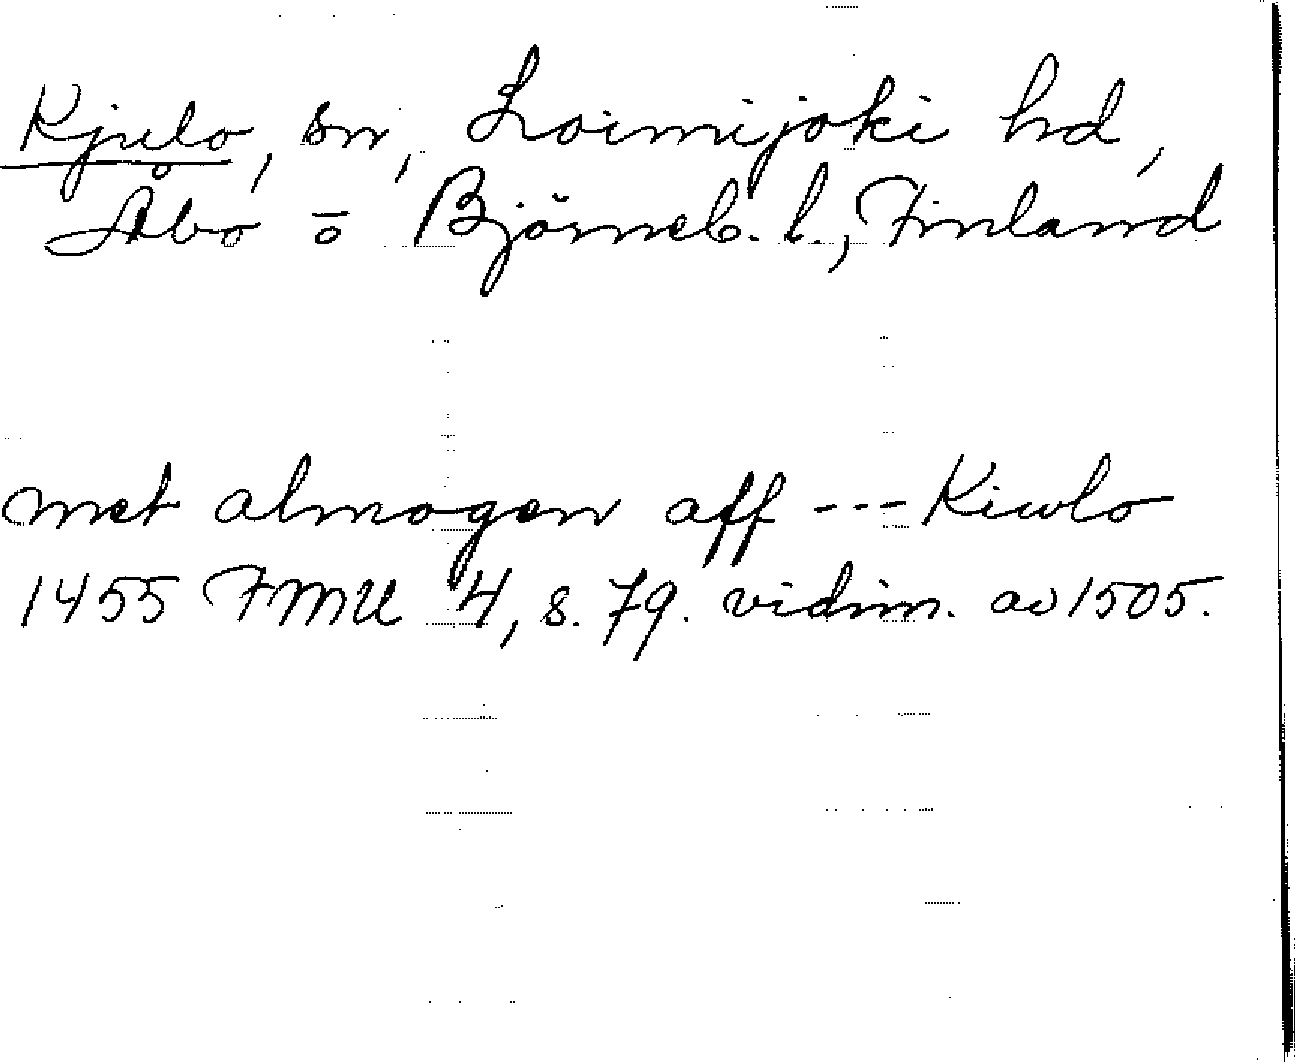 Kjulo, sn, Loimijoki hd,
Åbo o Björneb. l., Finland
met almogen aff --- Kiulo
1455 FMU 4, s. 79. vidim. av 1505.